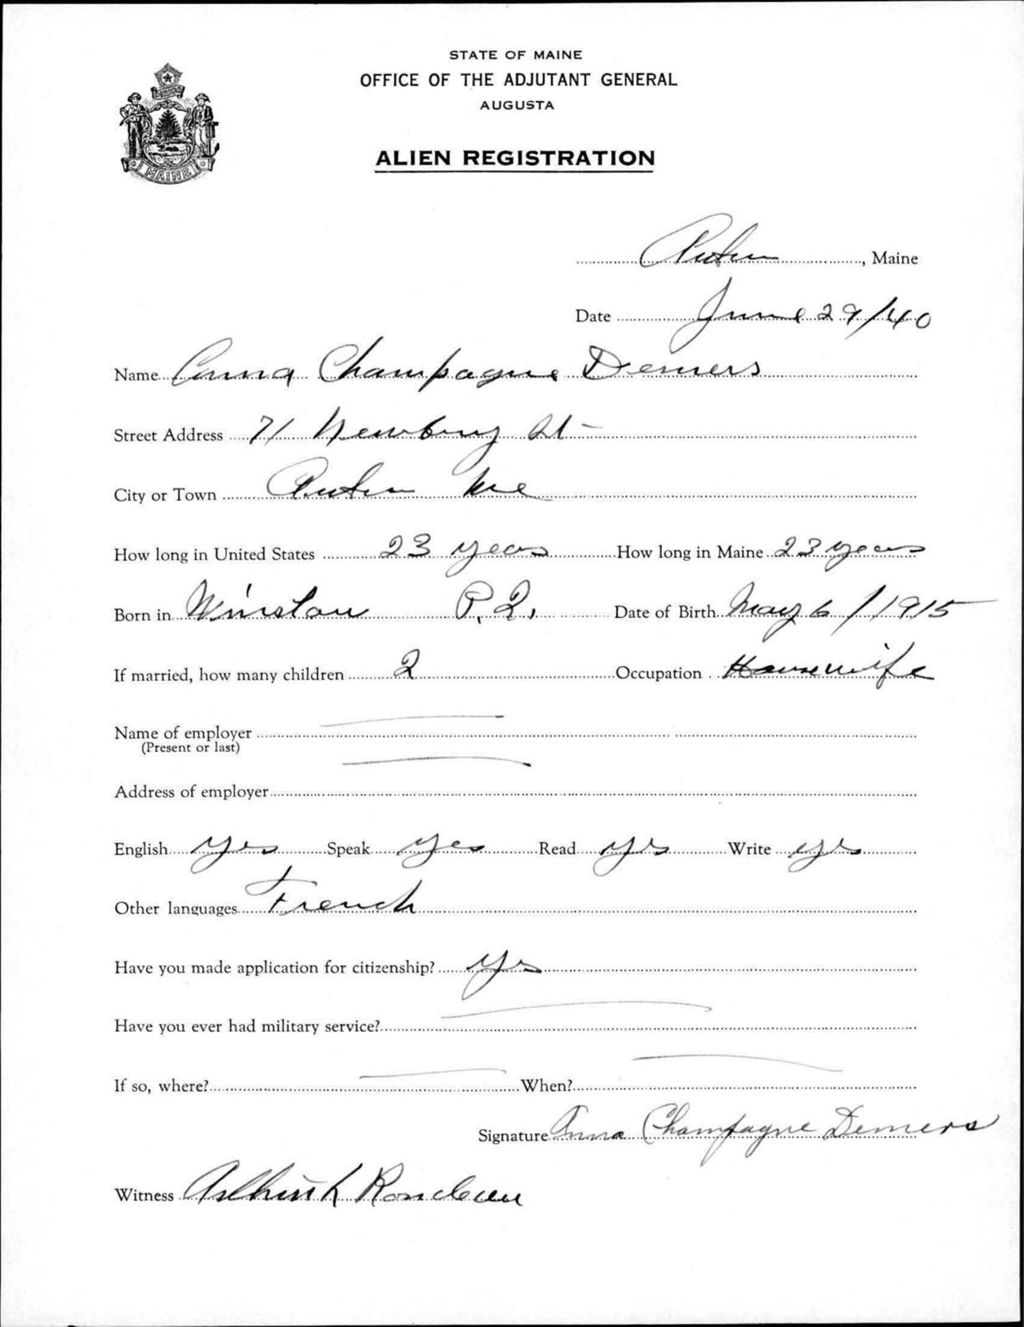 STATE OF MAINE
OFFICE OF THE ADJUTANT GENERAL
AUGUSTA
ALIEN REGISTRATION
MAINE
Auburn, Maine
Date June 29/40
Name Anna Champagne Demers
Street Address 71 Newbury St-
City or Town Auburn Me
How long in United States 23 years How long in Maine 23 years
Born in Winslow P.Q. Date of Birth May 6/1915
If married, how many children 2 Occupation Housewife
Name of employer
(Present or last)
Address of employer
English yes Speak yes Read yes Write yes
Other languages French
Have you made application for citizenship? yes
Have you ever had military service?
If so, where? When?
Signature Anna Champagne Demers
Witness